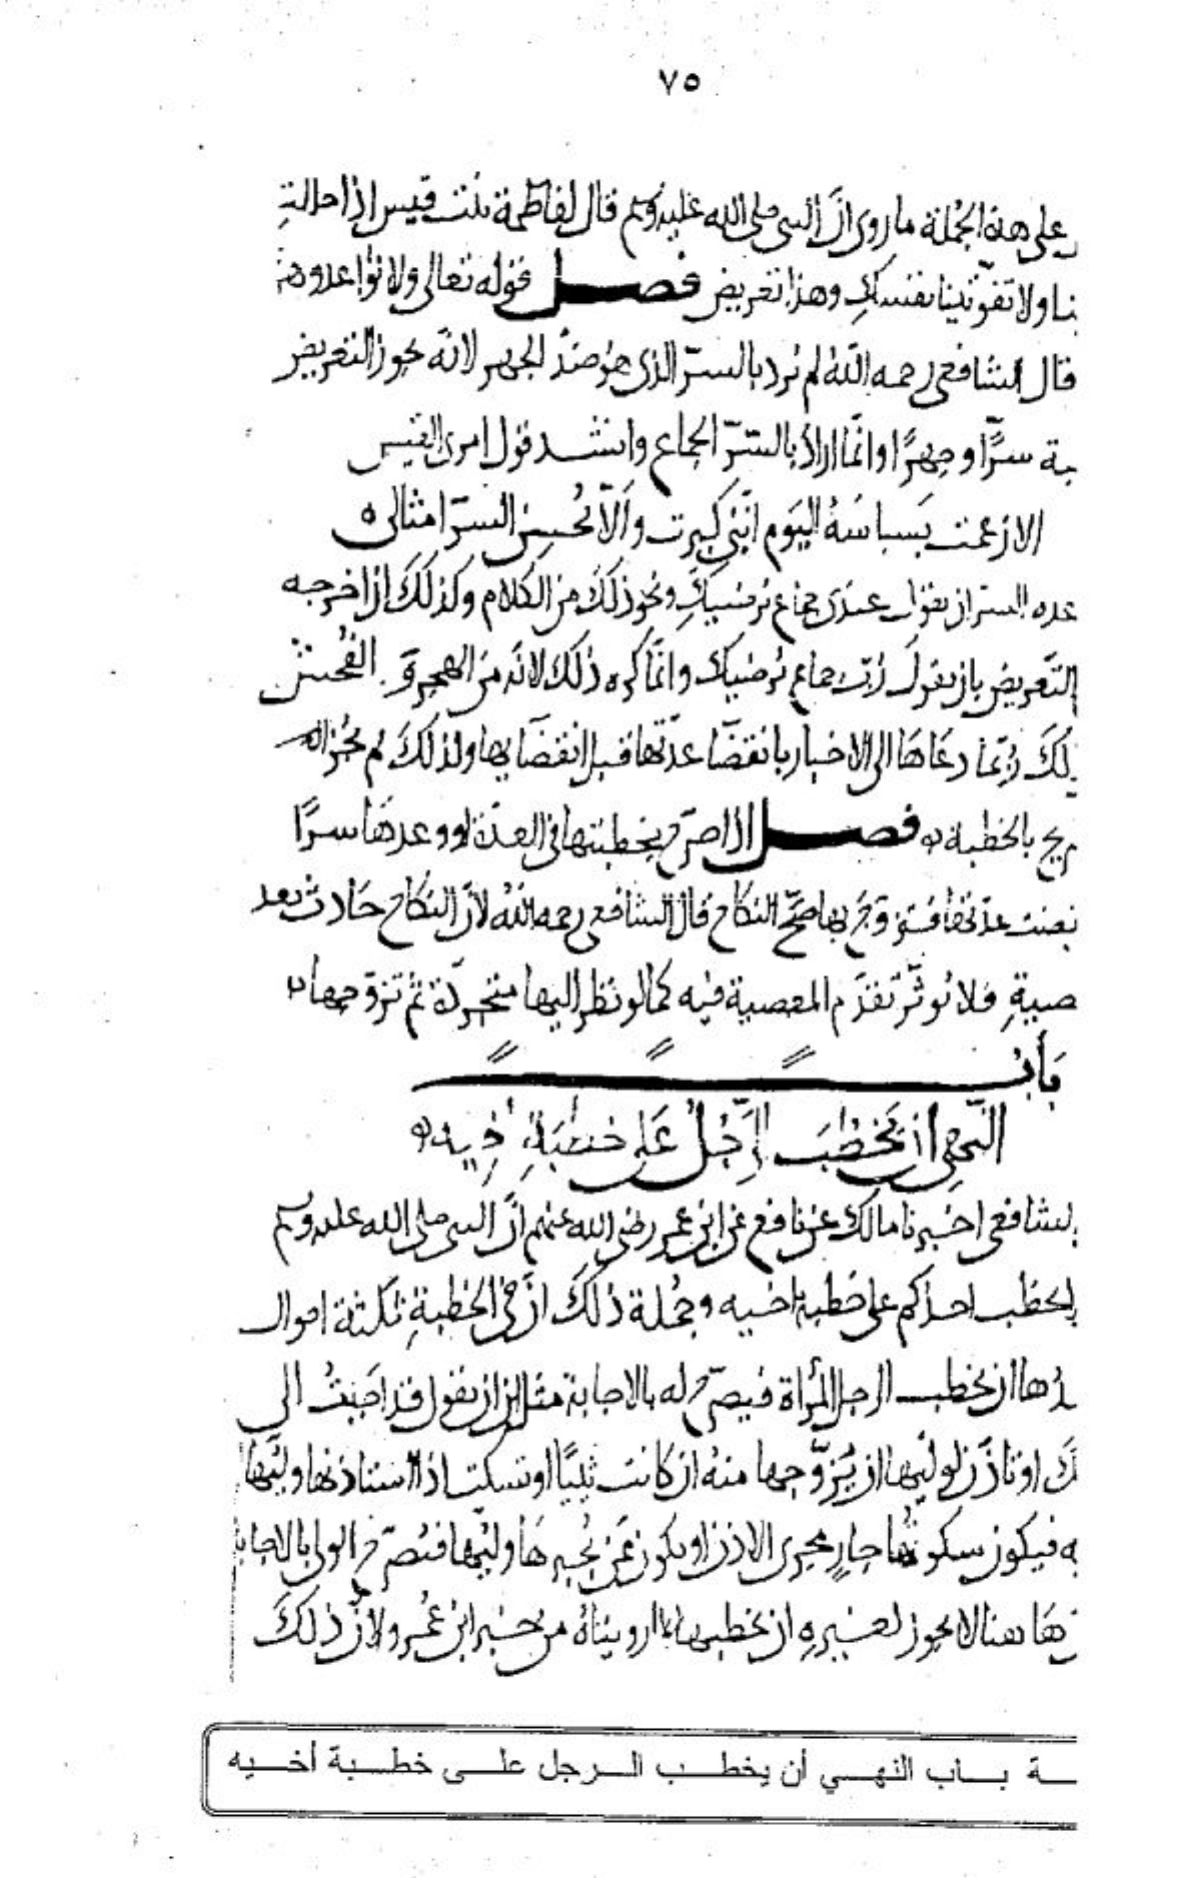 ٧٥
على هذه الجُملة ما روى انَّ النبى صلى الله عليه وسلم قال لفاطمة بنت قيس اذا حللتِ
ولا تفوّتينا نفسكِ وهذا تعريض فصل قوله تعالى ولا تواعدوهن
قال الشافعى رحمه اللّٰه لم يُرد بالسرّ الذى هو ضدُّ الجهر لانّه يجوز التعريض
به سرًّا وجهرًا وانّما اراد بالسّرّ الجماع وانشد قول امرئ القيس
الا زعمت بَسباسَةُ اليَوم انّنى كبرت وألاّ يُحسِن السرّ امثالى
السر ان يقول عندى جماع يُرضيكِ ونحو ذلك من الكلام وكذلكَ ان اخرجه
التّعريض بان يقول رُبّ جماعٍ يُرضيك وانّما كره ذلك لانّه من الهجر و الفُحش
رُبّما دعَاهَا الى الاخبار بانقضَا عدّتها قبل انقضَايها ولذلكَ لم يجُز
بالخطبة فصل اذا صرّح بخطبتها فى العدّة او وعدهَا سرًّا
عدّتها وتزوّج بها صحّ النكاح قال الشافعى رحمه اللّٰه لأنّ النكاح حَادث بعد
فلا يُوثّر تقدّم المعصية فيه كما لو نظر اليها متجردّة ثم تزوّجها
بَابُ
النّهى ان يَخطُبَ الرَّجُلُ عَلى خطبَةِ اخيه
الشافعى اخبرنا مالك عن نافع عن ابن عمر رضى الله عنهم انَّ النبى صلى الله عليه وسلم
يخطب احدكم على خطبة اخيه وجُملة ذلكَ انَّ فى الخطبةِ ثلثة احوال
ان يخطب الرجل المرأة فيصرّح له بالاجابة مثل ان يقول قد اجَبتُ الى
او تاذَن لوليّها ان يُزوّجها منه ان كانت ثيّبًا او تسكت اذا استاذنها وليّها
فيكون سكوتُها جارٍ مجرى الاذن او يكون ممَّن يُجبرهَا وليّها فيُصرّح الولى بالاجابة
هاهنا لا يجوز لغيرهِ ان يخطبها لما رويناهُ من خبر ابن عُمر ولأنّ ذلكَ
ـة باب النهي أن يخطب الرجل على خطبة أخيه